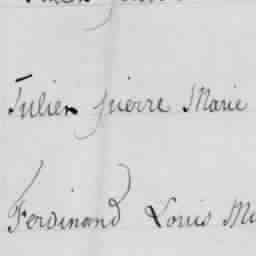 Julien pierre Marie
Ferdinand Louis